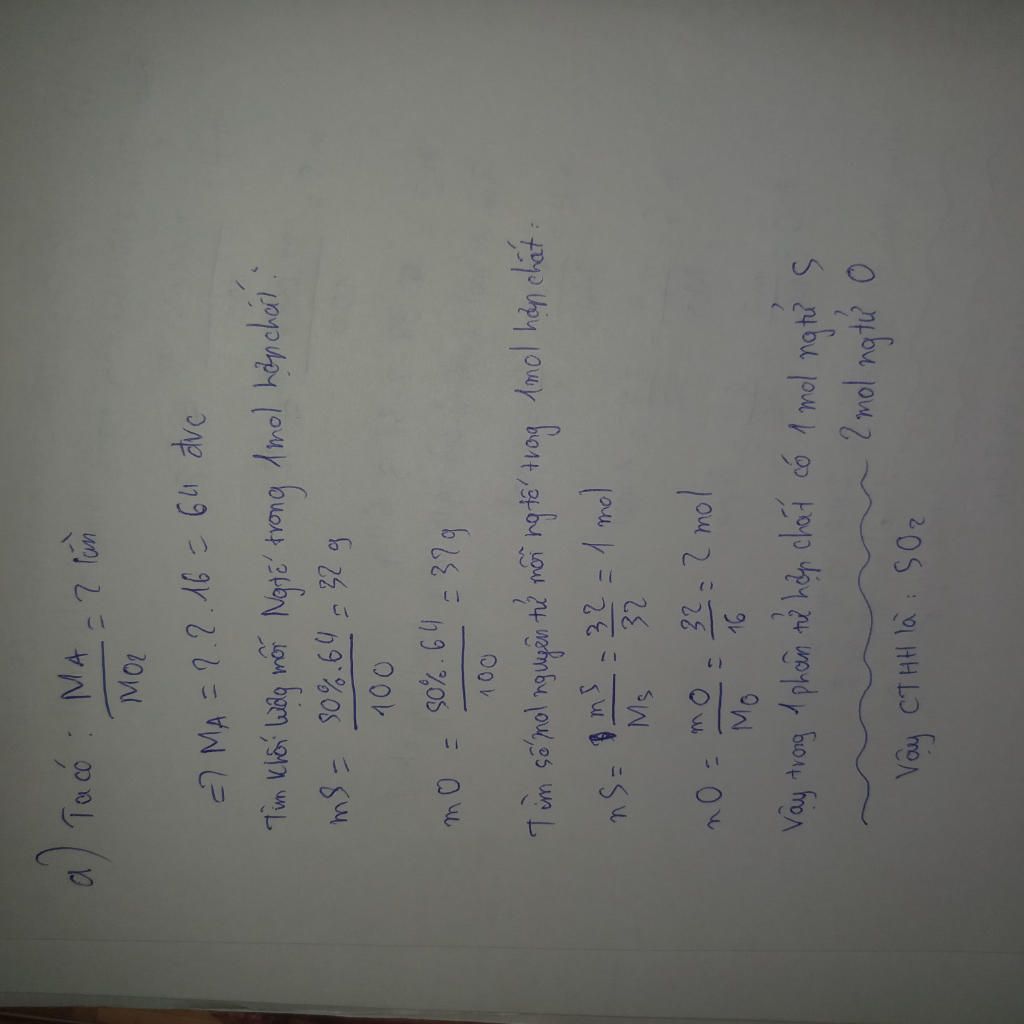 a) Ta có : MA / MO2 = 2 lần
=> MA = 2.2.16 = 64 đvc
Tìm khối lượng mỗi Ngtố trong 1 mol hợp chất:
mS = 50%.64 / 100 = 32 g
mO = 50%.64 / 100 = 32 g
Tìm số mol nguyên tử mỗi ngtố trong 1 mol hợp chất:
nS = mS / MS = 32 / 32 = 1 mol
nO = mO / MO = 32 / 16 = 2 mol
Vậy trong 1 phân tử hợp chất có 1 mol ngtử S
2 mol ngtử O
Vậy CTHH là : SO2